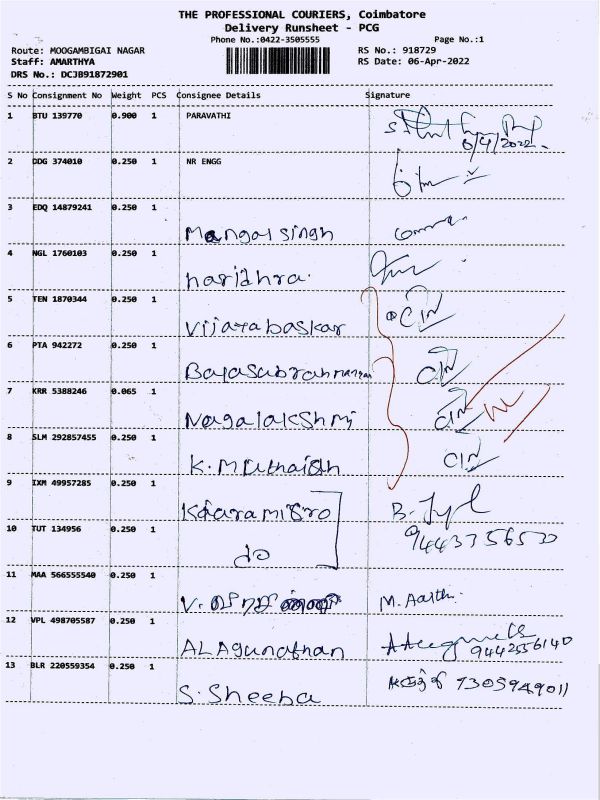 THE PROFESSIONAL COURIERS, Coimbatore
Delivery Runsheet - PCG
Phone No.:0422-3505555 Page No.:1
Route: MOOGAMBIGAI NAGAR RS No.: 918729
Staff: AMARTHYA RS Date: 06-Apr-2022
DRS No.: DCJB91872901
S No Consignment No Weight PCS Consignee Details Signature
1 BTU 139770 0.900 1 PARAVATHI
6/4/2022
2 DDG 374010 0.250 1 NR ENGG
3 EDQ 14879241 0.250 1
Mangal singh
4 NGL 1760103 0.250 1
haridhra.
5 TEN 1870344 0.250 1
Vijayabaskar CIN
6 PTA 942272 0.250 1
Balasubrahmanyan CIN
7 KRR 5388246 0.065 1
Nagalakshmi CIN
8 SLM 292857455 0.250 1
K. Muthaiah CIN
9 IXM 49957285 0.250 1
10 TUT 134956 0.250 1
do
11 MAA 566555540 0.250 1
V. M. Aarthi
12 VPL 498705587 0.250 1
ALAgunathan 9442556140
13 BLR 220559354 0.250 1
S. Sheeba 7305949011